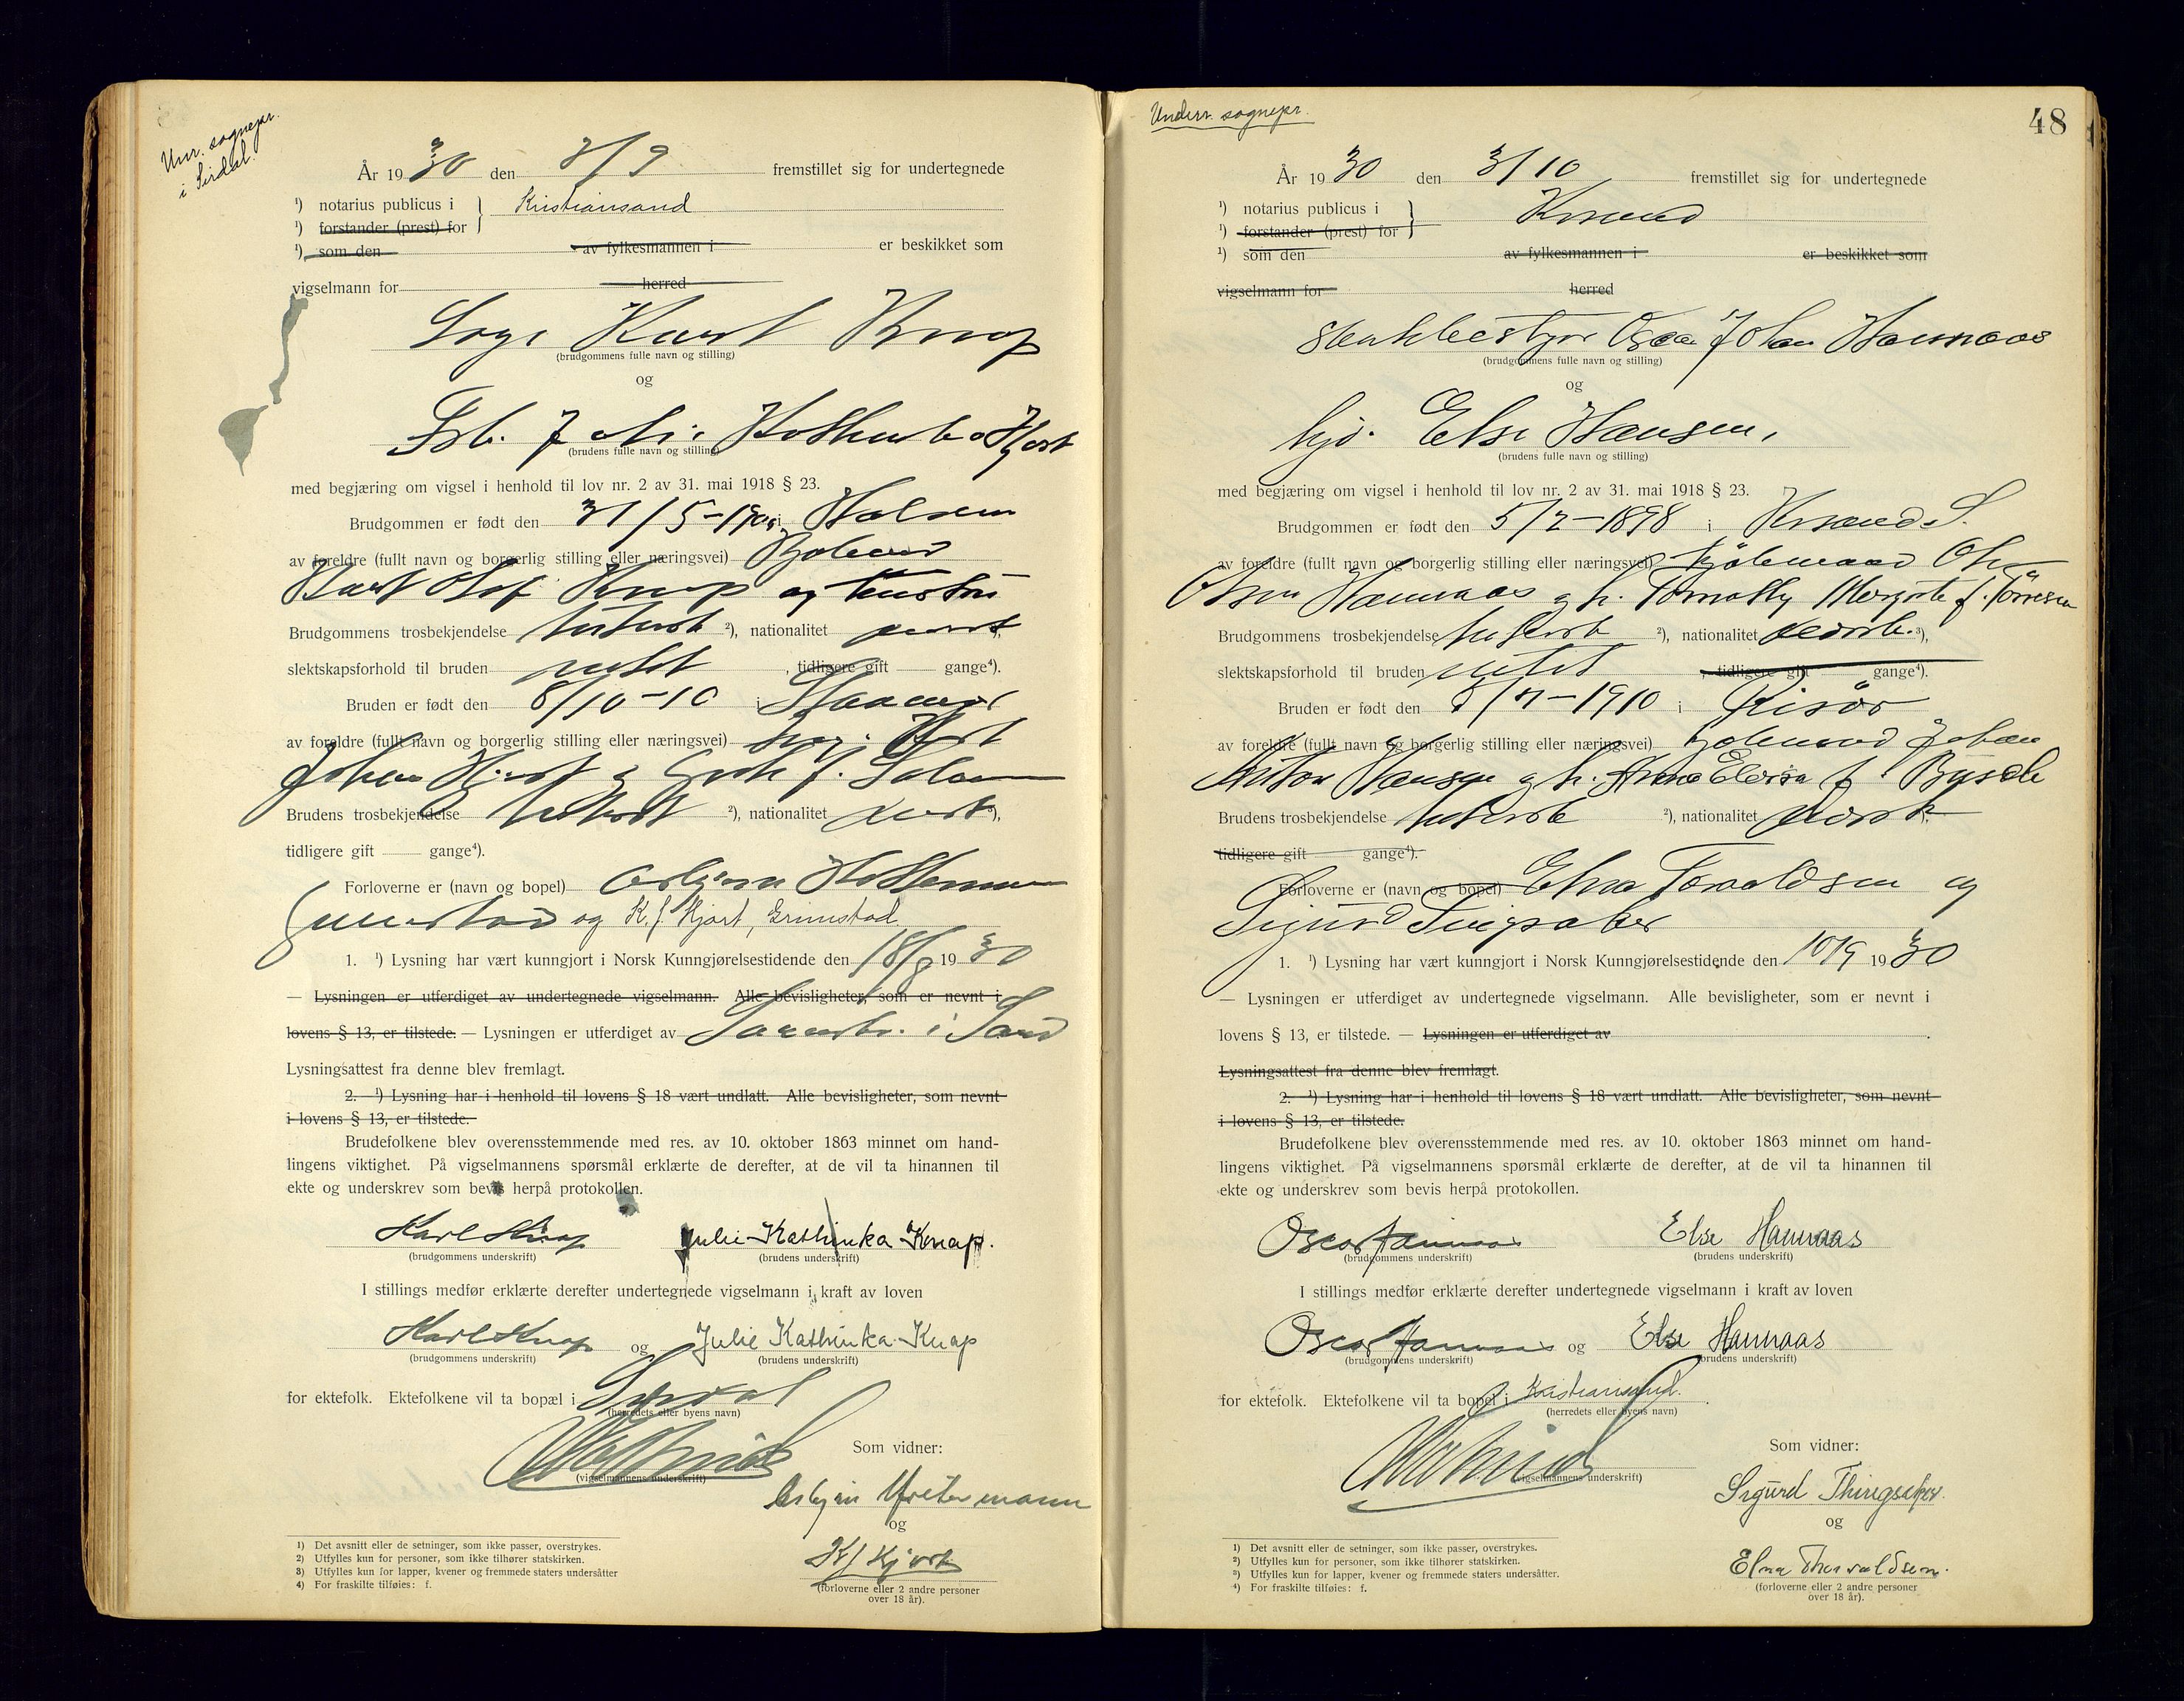 Unr. sognepr.
i Sirdal.
År 19 30 den 3/9 fremstillet sig for undertegnede
¹) notarius publicus i } Kristiansand
¹) forstander (prest) for
¹) som den av fylkesmannen i er beskikket som
vigselmann for herred
Karl Knap
(brudgommens fulle navn og stilling)
og
Hjort
(brudens fulle navn og stilling)
med begjæring om vigsel i henhold til lov nr. 2 av 31. mai 1918 § 23.
Brudgommen er født den 31/5-190 i
av foreldre (fullt navn og borgerlig stilling eller næringsvei)
Knap og
Brudgommens trosbekjendelse ²), nationalitet norsk
slektskapsforhold til bruden , tidligere gift gange⁴).
Bruden er født den 8/10-10 i
av foreldre (fullt navn og borgerlig stilling eller næringsvei)
Johan Hjort
Brudens trosbekjendelse ²), nationalitet norsk ³),
tidligere gift gange⁴).
Forloverne er (navn og bopel) Asbjørn
og K. J. Hjort, Grimstad.
1. ¹) Lysning har vært kunngjort i Norsk Kunngjørelsestidende den 18/8 19 30
— Lysningen er utferdiget av undertegnede vigselmann. Alle bevisligheter, som er nevnt i
lovens § 13, er tilstede. — Lysningen er utferdiget av
Lysningsattest fra denne blev fremlagt.
2. ¹) Lysning har i henhold til lovens § 18 vært undlatt. Alle bevisligheter, som nevnt
i lovens § 13, er tilstede.
Brudefolkene blev overensstemmende med res. av 10. oktober 1863 minnet om hand-
lingens viktighet. På vigselmannens spørsmål erklærte de derefter, at de vil ta hinannen til
ekte og underskrev som bevis herpå protokollen.
Karl Knap Julie Kathinka Knap.
(brudgommens underskrift) (brudens underskrift)
I stillings medfør erklærte derefter undertegnede vigselmann i kraft av loven
Karl Knap og Julie Kathinka Knap
(brudgommens underskrift) (brudens underskrift)
for ektefolk. Ektefolkene vil ta bopæl i Sirdal
(herredets eller byens navn)
Som vidner:
(vigselmannens underskrift)
Asbjørn
og
K J Hjort
(forloverne eller 2 andre personer
over 18 år).
1) Det avsnitt eller de setninger, som ikke passer, overstrykes.
2) Utfylles kun for personer, som ikke tilhører statskirken.
3) Utfylles kun for lapper, kvener og fremmede staters undersåtter
4) For fraskilte tilføies: f.
Underr. sognepr.
48
År 19 30 den 3/10 fremstillet sig for undertegnede
¹) notarius publicus i } Krsand
¹) forstander (prest) for
¹) som den av fylkesmannen i er beskikket som
vigselmann for herred
Johan Hannaas
(brudgommens fulle navn og stilling)
og
Else Hansen,
(brudens fulle navn og stilling)
med begjæring om vigsel i henhold til lov nr. 2 av 31. mai 1918 § 23.
Brudgommen er født den 5/7-1898 i Krsand S.
av foreldre (fullt navn og borgerlig stilling eller næringsvei)
Hannaas og h. Margrete f. Tørresen
Brudgommens trosbekjendelse luthersk ²), nationalitet norsk ³),
slektskapsforhold til bruden intet , tidligere gift gange⁴).
Bruden er født den /7-1910 i Risör
av foreldre (fullt navn og borgerlig stilling eller næringsvei) Johan
Anton Hansen og h. Anna f.
Brudens trosbekjendelse luthersk ²), nationalitet norsk
tidligere gift gange⁴).
Forloverne er (navn og bopel) Elna Toraldsen og
Sigurd
1. ¹) Lysning har vært kunngjort i Norsk Kunngjørelsestidende den 10/9 19 30
— Lysningen er utferdiget av undertegnede vigselmann. Alle bevisligheter, som er nevnt i
lovens § 13, er tilstede. — Lysningen er utferdiget av .
Lysningsattest fra denne blev fremlagt.
2. ¹) Lysning har i henhold til lovens § 18 vært undlatt. Alle bevisligheter, som nevnt
i lovens § 13, er tilstede.
Brudefolkene blev overensstemmende med res. av 10. oktober 1863 minnet om hand-
lingens viktighet. På vigselmannens spørsmål erklærte de derefter, at de vil ta hinannen til
ekte og underskrev som bevis herpå protokollen.
Oscar Hannaas Else Hannaas
(brudgommens underskrift) (brudens underskrift)
I stillings medfør erklærte derefter undertegnede vigselmann i kraft av loven
Oscar Hannaas og Else Hannaas
(brudgommens underskrift) (brudens underskrift)
for ektefolk. Ektefolkene vil ta bopel i Kristiansand.
(herredets eller byens navn)
Som vidner:
(vigselmannens underskrift)
Sigurd
og
Elna Thorvaldsen.
(forloverne eller 2 andre personer
over 18 år).
1) Det avsnitt eller de setninger, som ikke passer, overstrykes.
2) Utfylles kun for personer, som ikke tilhører statskirken.
3) Utfylles kun for lapper, kvener og fremmede staters undersåtter.
4) For fraskilte tilføies: f.